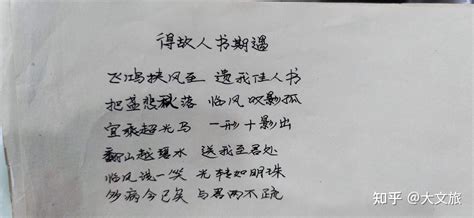 得故人书期遇
飞鸿挟风至 遗我佳人书
把盏悲秋落 临风叹影孤
宜乘超光马 一形十影出
翻山越碧水 送我至君处
临风谈一笑 光转如明珠
多病今已矣 与君两不疏
知乎 @大文旅